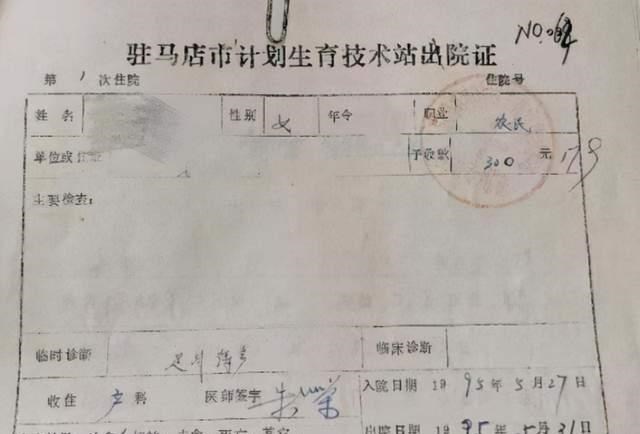 NO.
驻马店市计划生育技术站出院证
第 1 次住院 住院号
姓名 性别 女 年令 职业 农民
单位或住 予收款 300 元
主要检查:
临时诊断 足月 临床诊断
收住 产科 医师签字 入院日期 19 95年5月27日
出院日期 19 95.年 5月31日